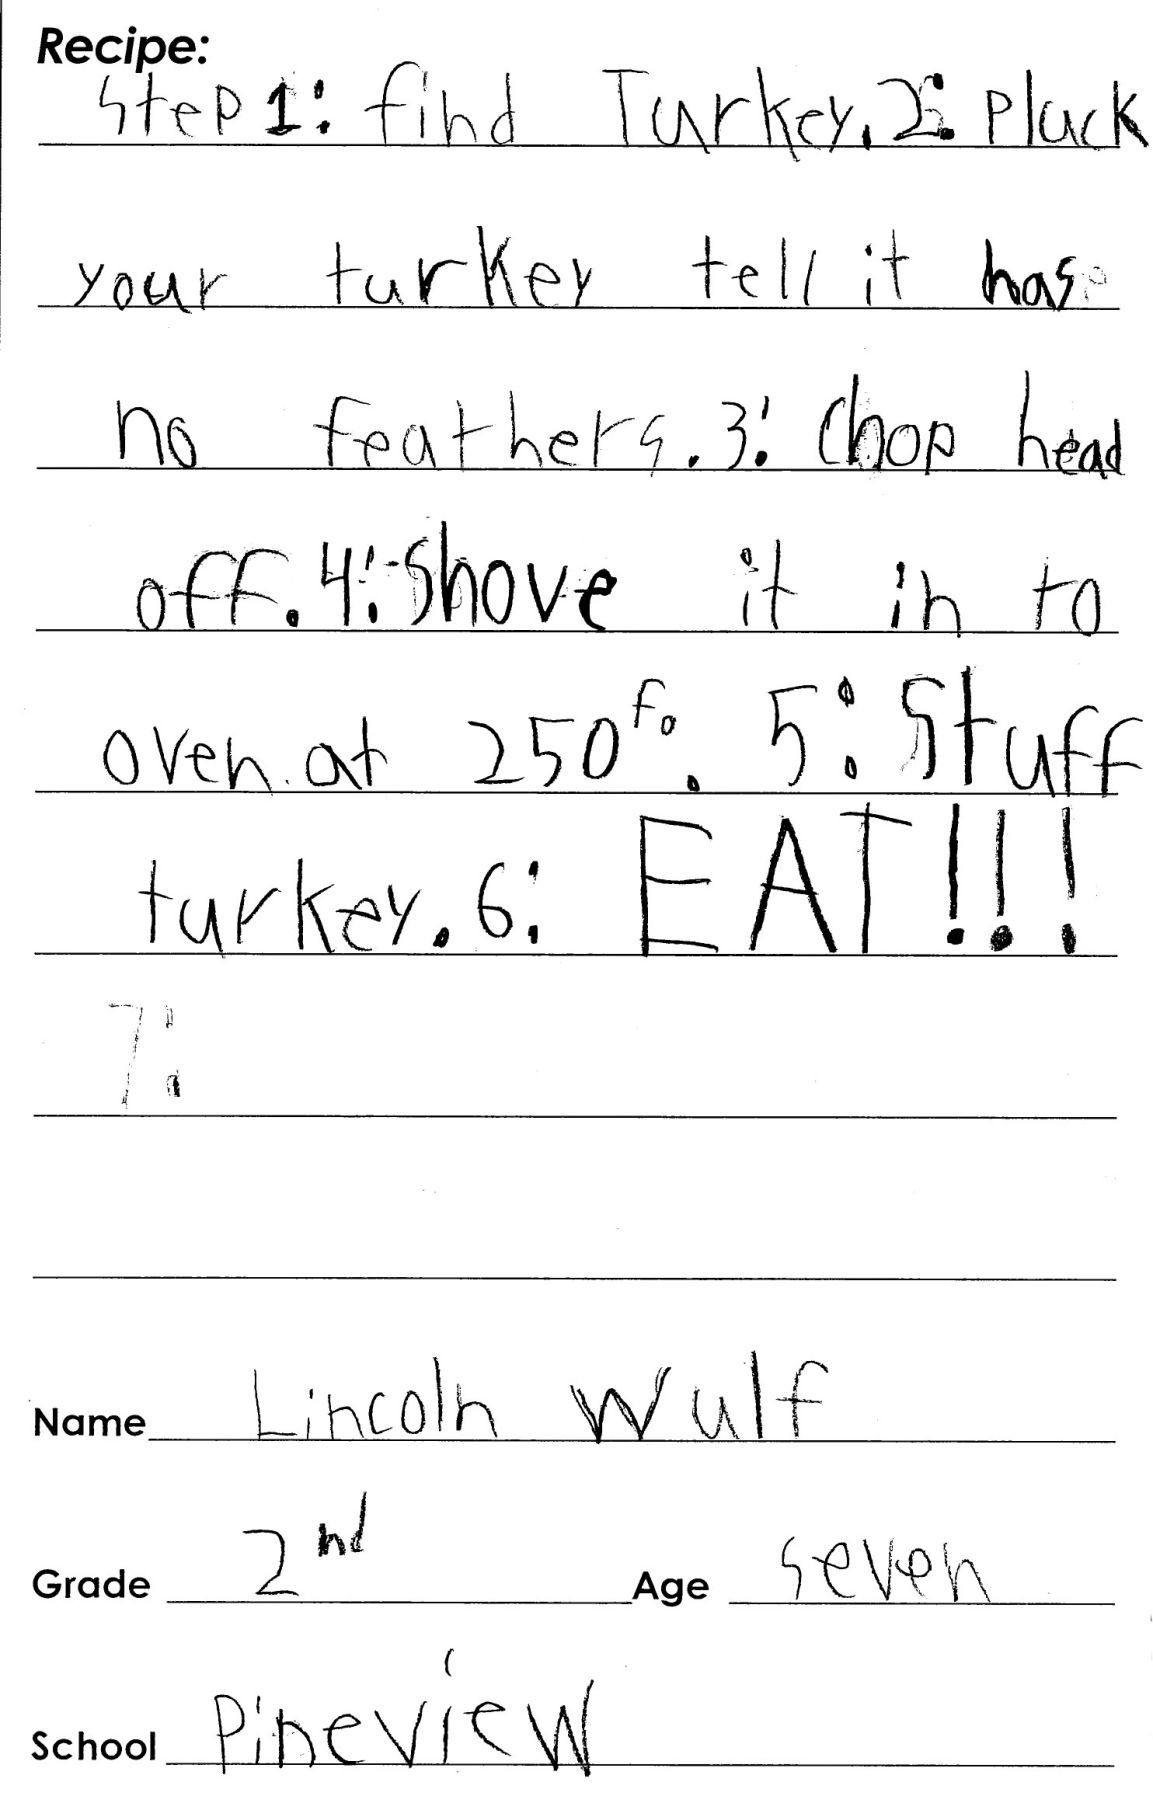 Recipe:
Step 1: find Turkey. 2: Pluck
your turkey tell it has
no feathers. 3: Chop head
off. 4: Shove it in to
oven. at 250 F°. 5: Stuff
turkey. 6: EAT!!!
7:
Name Lincoln Wulf
Grade 2nd Age seven
School Pineview